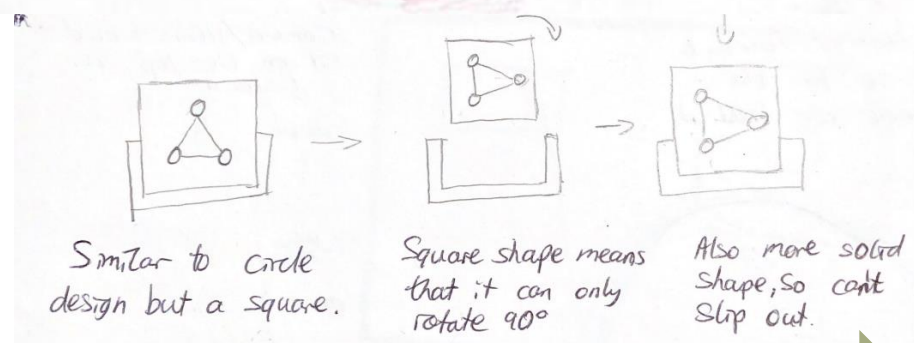 Similar to circle
design but a square.
Square shape means
that it can only
rotate 90°
Also more solid
shape, so can't
slip out.